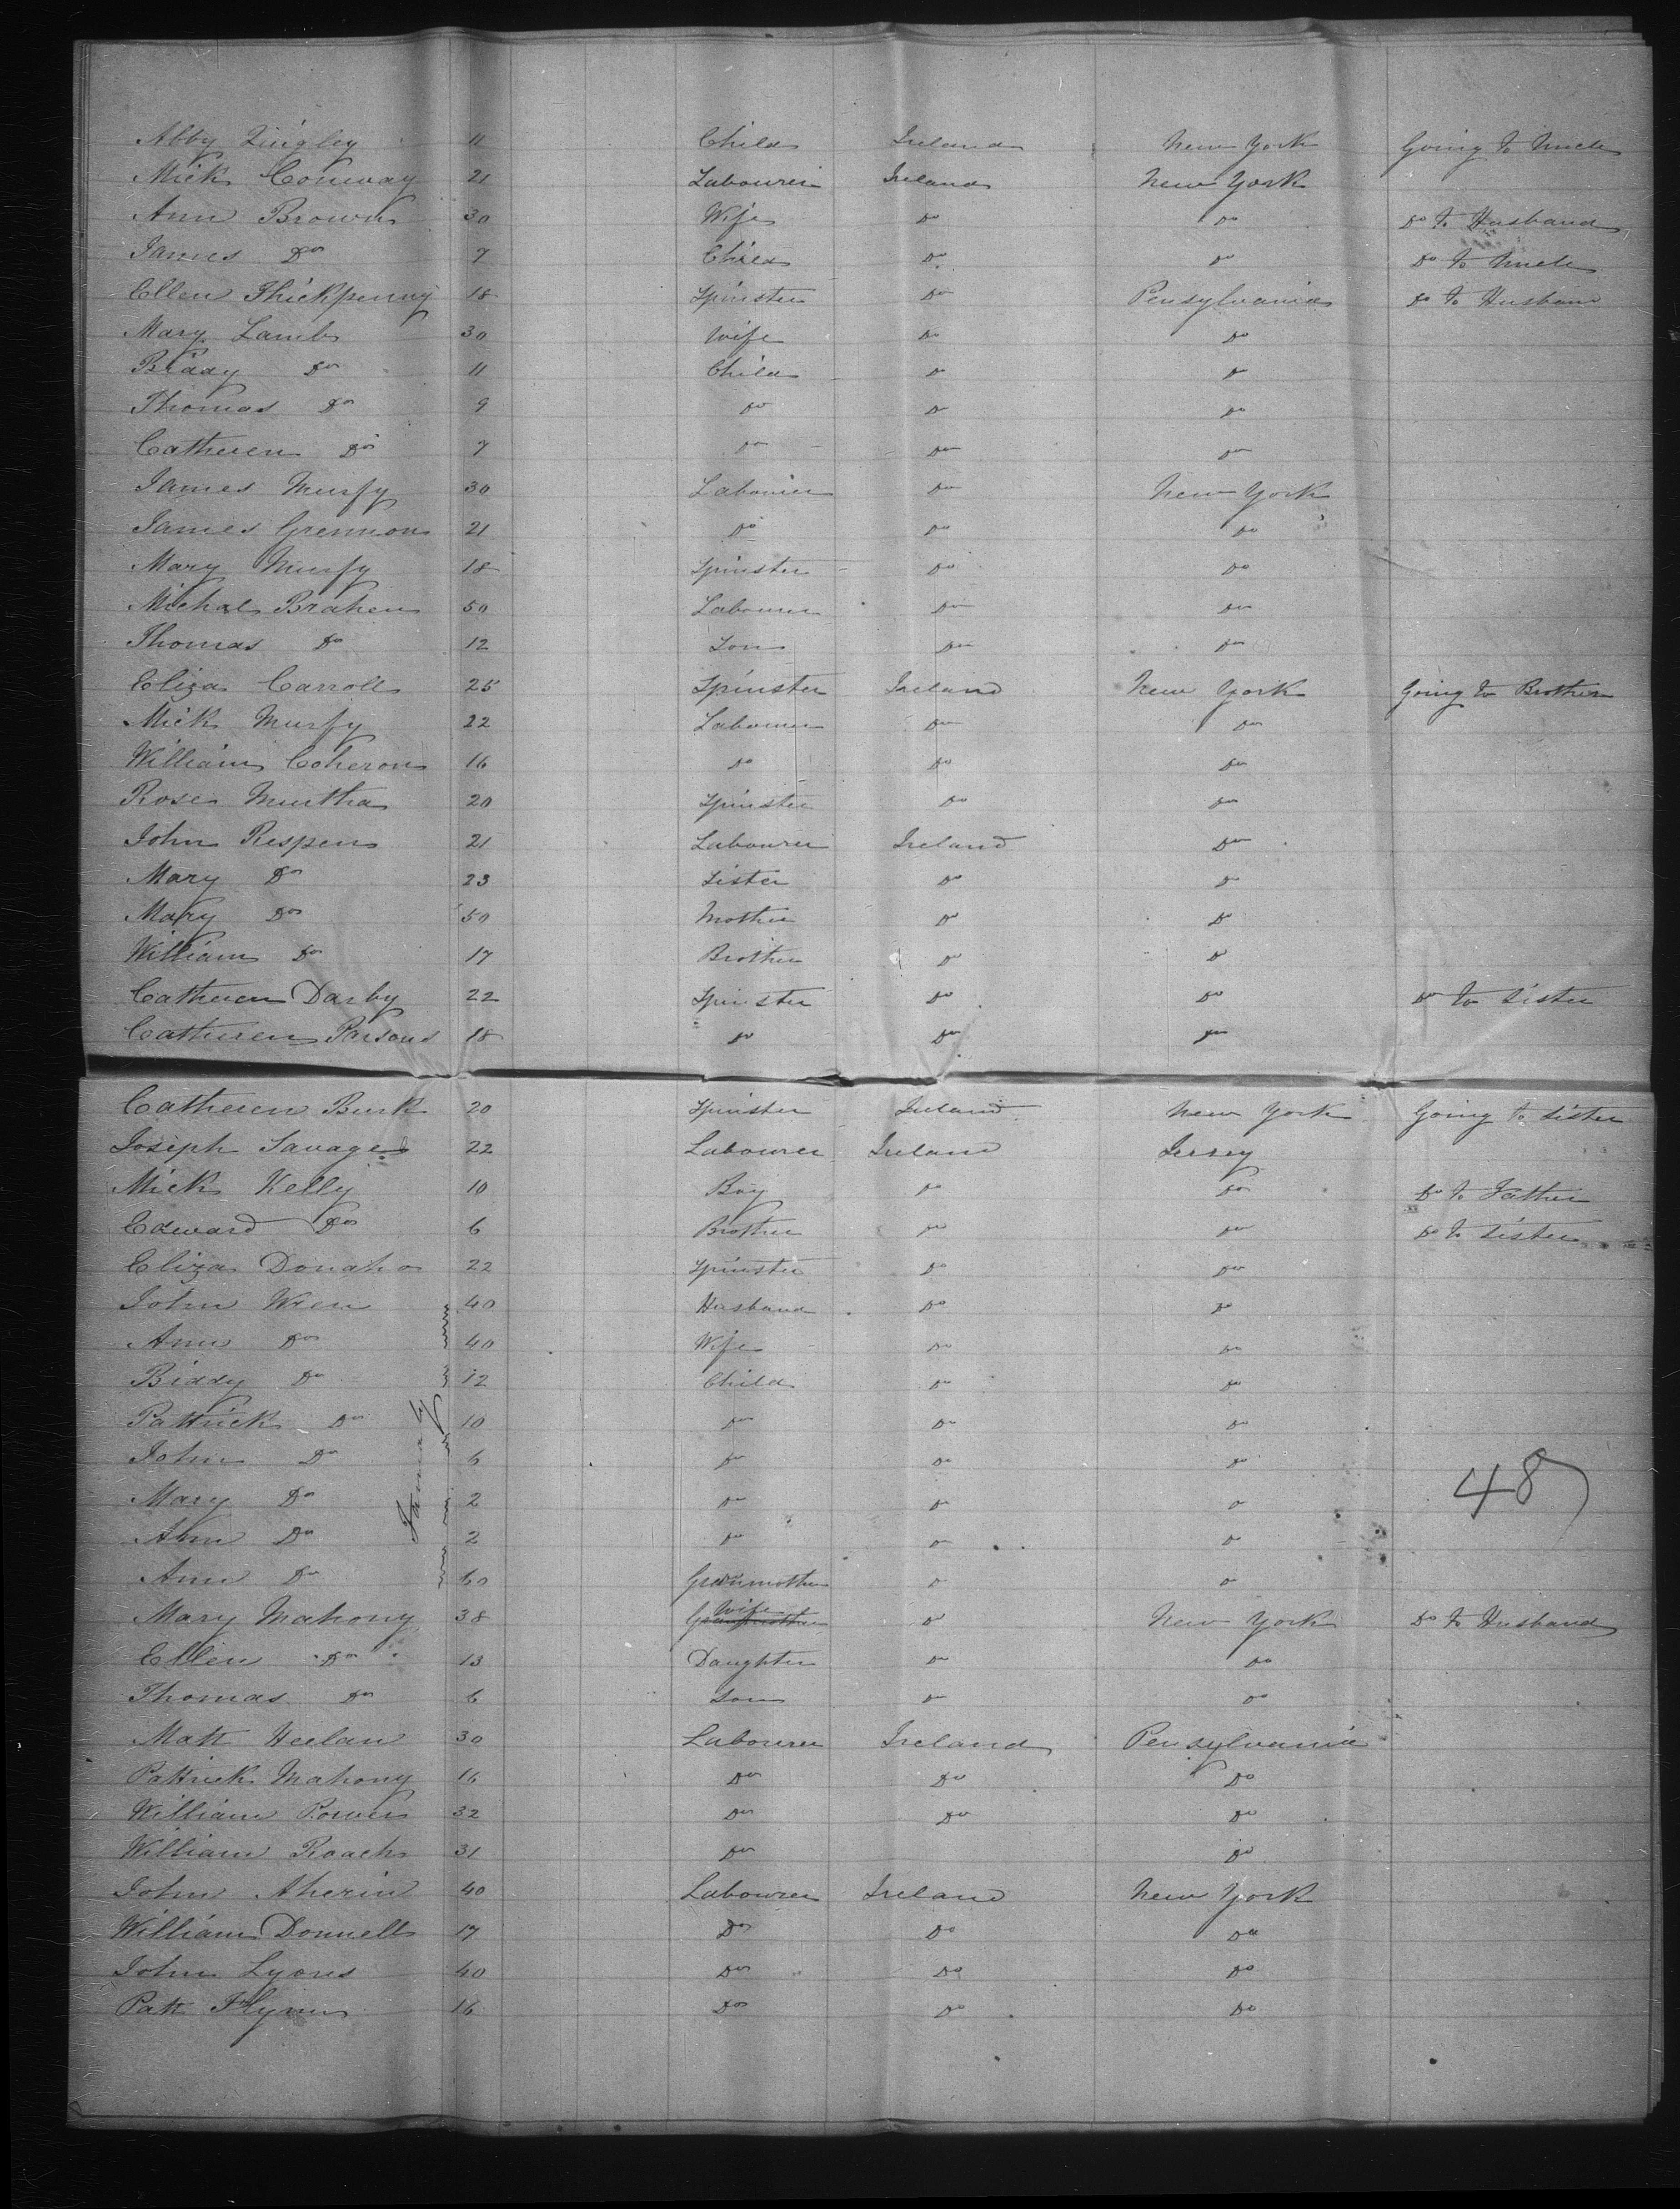 Abby Lingley 11 Child Ireland New York Going to Uncle
Mick Conway 21 Labourer Ireland New York
Ann Brown 30 Wife Do Do Do to Husband
James Do 7 Child Do Do Do to Uncle
Ellen Thickpenny 18 Spinster Do Pensylvania Do to Husband
Mary Lamb 30 Wife Do Do
Biddy Do 11 Child Do Do
Thomas Do 9 Do Do Do
Catheren Do 7 Do Do Do
James Murfy 30 Labourer Do New York
James Grennon 21 Do Do Do
Mary Murfy 18 Spinster Do Do
Michal Brahen 50 Labourer Do Do
Thomas Do 12 Son Do Do
Eliza Carroll 25 Spinster Ireland New York Going to Brother
Mick Murfy 22 Labourer Do Do
William Coheron 16 Do Do Do
Rose Murtha 20 Spinster Do Do
John Respen 21 Labourer Ireland Do
Mary Do 23 Sister Do Do
Mary Do 50 Mother Do Do
William Do 17 Brother Do Do
Catheren Darby 22 Spinster Do Do Do to Sister
Catheren Parsons 18 Do Do Do
Catheren Burk 20 Spinster Ireland New York Going to Sister
Joseph Savage 22 Labourer Ireland Jersey
Mick Kelly 10 Boy Do Do Do to Father
Edward Do 6 Brother Do Do Do to Sister
Eliza Donaho 22 Spinster Do Do
John Wren 40 Husband Do Do
Ann Do 40 Wife Do Do
Biddy Do 12 Child Do Do
Pattrick Do 10 Do Do Do
John Do 6 Do Do Do
Family
48
Mary Do 2 Do Do Do
Ann Do 2 Do Do Do
Ann Do 60 Grandmother Do Do
Mary Mahony 38 Wife Do New York Do to Husband
Ellen Do 13 Daughter Do Do
Thomas Do 6 Son Do Do
Matt Heelan 30 Labourer Ireland Pensylvania
Pattrick Mahony 16 Do Do Do
William Power 32 Do Do Do
William Roach 31 Do Do
John Aherin 40 Labourer Ireland New York
William Donnell 17 Do Do Do
John Lyons 40 Do Do Do
Patt Flynn 16 Do Do Do